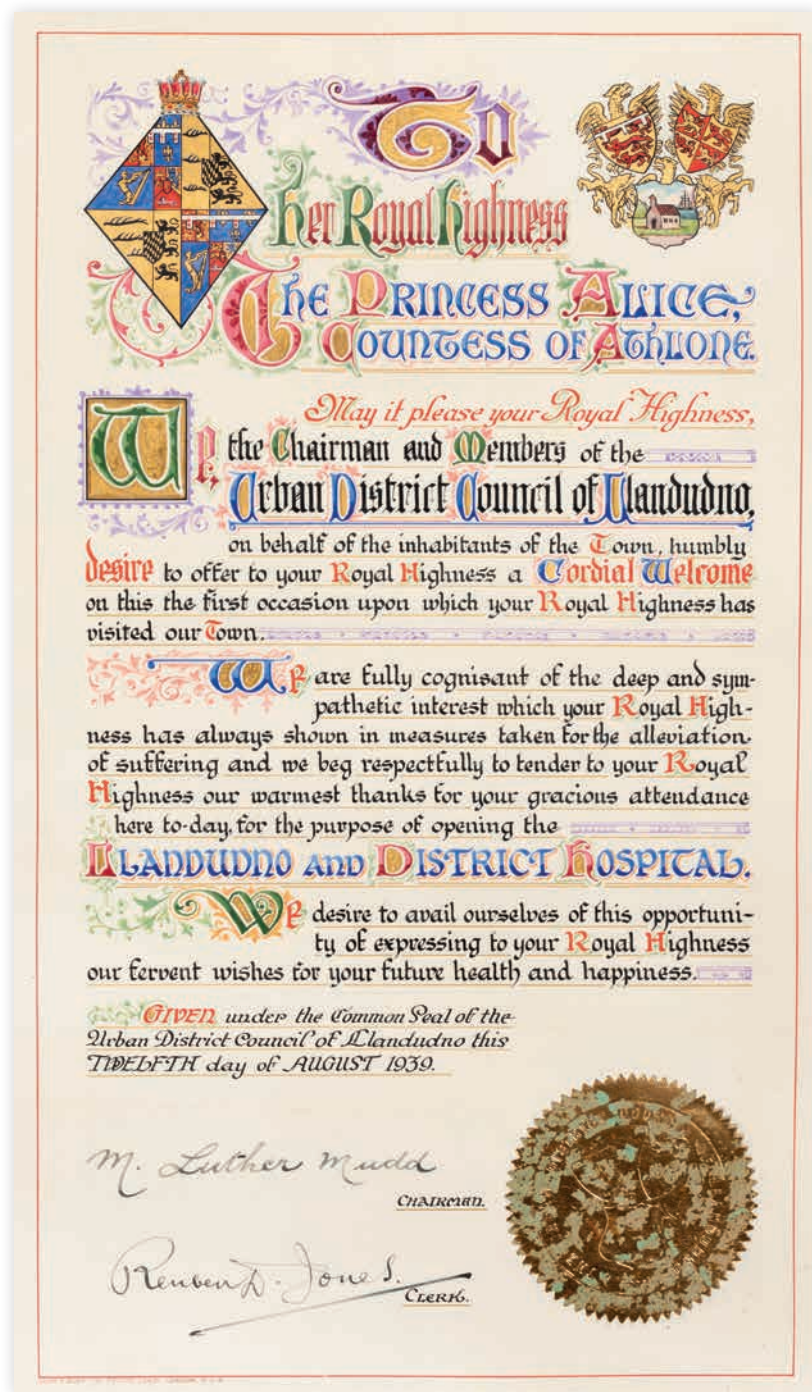 To
Her Royal Highness
The Princess Alice,
Countess of Athlone.
May it please your Royal Highness,
We, the Chairman and Members of the
Urban District Council of Llandudno,
on behalf of the inhabitants of the Town, humbly
desire to offer to your Royal Highness a Cordial Welcome
on this the first occasion upon which your Royal Highness has
visited our Town.
We are fully cognisant of the deep and sym-
pathetic interest which your Royal High-
ness has always shown in measures taken for the alleviation
of suffering and we beg respectfully to tender to your Royal
Highness our warmest thanks for your gracious attendance
here to-day, for the purpose of opening the
Llandudno and District Hospital.
We desire to avail ourselves of this opportuni-
ty of expressing to your Royal Highness
our fervent wishes for your future health and happiness.
Given under the Common Seal of the
Urban District Council of Llandudno this
TWELFTH day of AUGUST 1939.
M. Luther Mudd
Chairman.
Reuben D. Jones.
Clerk.